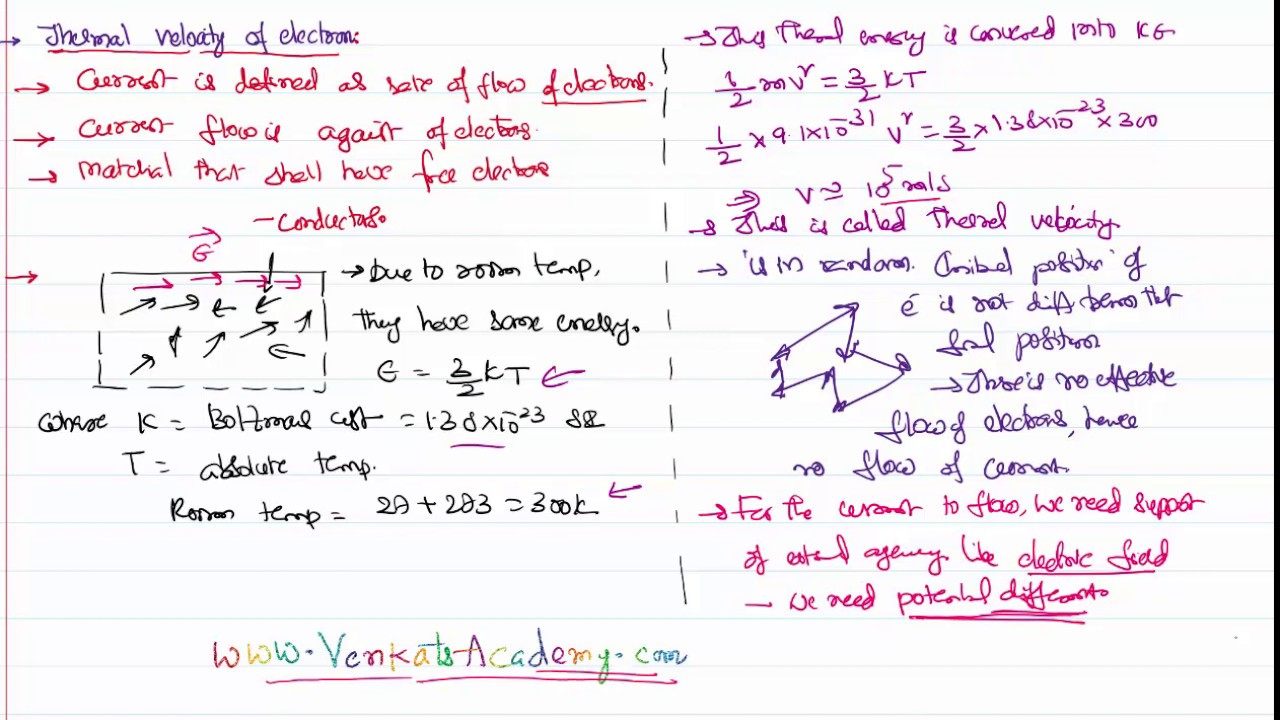 → Thermal velocity of electron:
→ Current is defined as rate of flow of electrons.
→ Current flow is against of electrons.
→ Material that shall have free electrons
— Conductors.
→ E
→ Due to room temp,
they have some energy.
E = 3/2 KT ←
where K = Boltzmans cst = 1.38×10^-23
T = absolute temp.
Room temp = 27 + 273 = 300K ←
→ This thermal energy is conversed into KE
1/2 mv² = 3/2 KT
1/2 × 9.1×10^-31 v² = 3/2 × 1.38×10^-23 × 300
⇒ v ≃ 10^5 m/s
→ This is called Thermal velocity.
→ is in random. Initial position of
e is not diff then that
final position
→ There is no effective
flow of electrons, hence
no flow of current.
→ For the current to flow, we need support
of external agency. like electric field
— we need potential difference
www.VenkatsAcademy.com